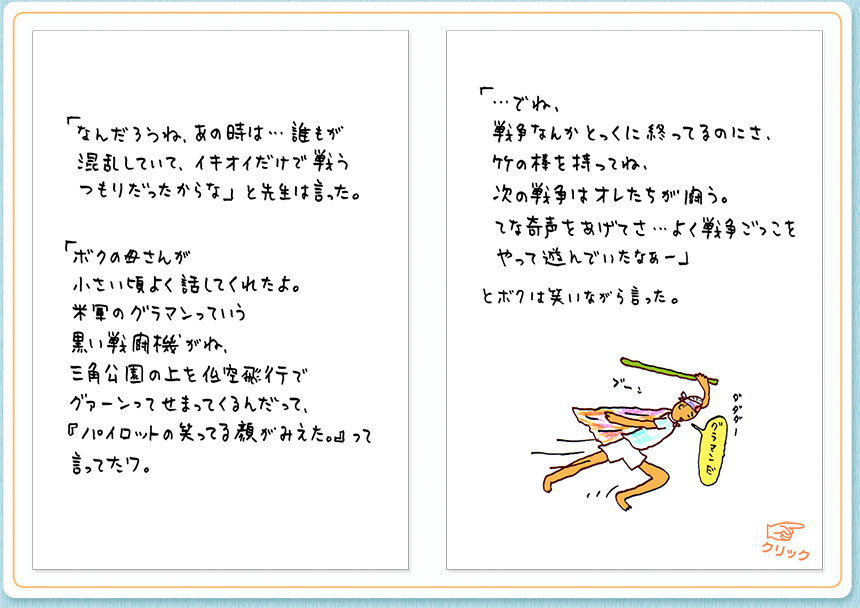 「なんだろうね、あの時は…誰もが
混乱していて、イキオイだけで戦う
つもりだったからな」と先生は言った。
「ボクの母さんが
小さい頃よく話してくれたよ。
米軍のグラマンっていう
黒い戦闘機がね、
三角公園の上を低空飛行で
グァーンってせまってくるんだって、
『パイロットの笑ってる顔がみえた。』って
言ってたワ。
「…でね、
戦争なんかとっくに終ってるのにさ、
竹の棒を持ってね、
次の戦争はオレたちが闘う。
てな奇声をあげてさ…よく戦争ごっこを
やって遊んでいたなあー」
とボクは笑いながら言った。
ブーン
ダダダー
グラマンだ
クリック